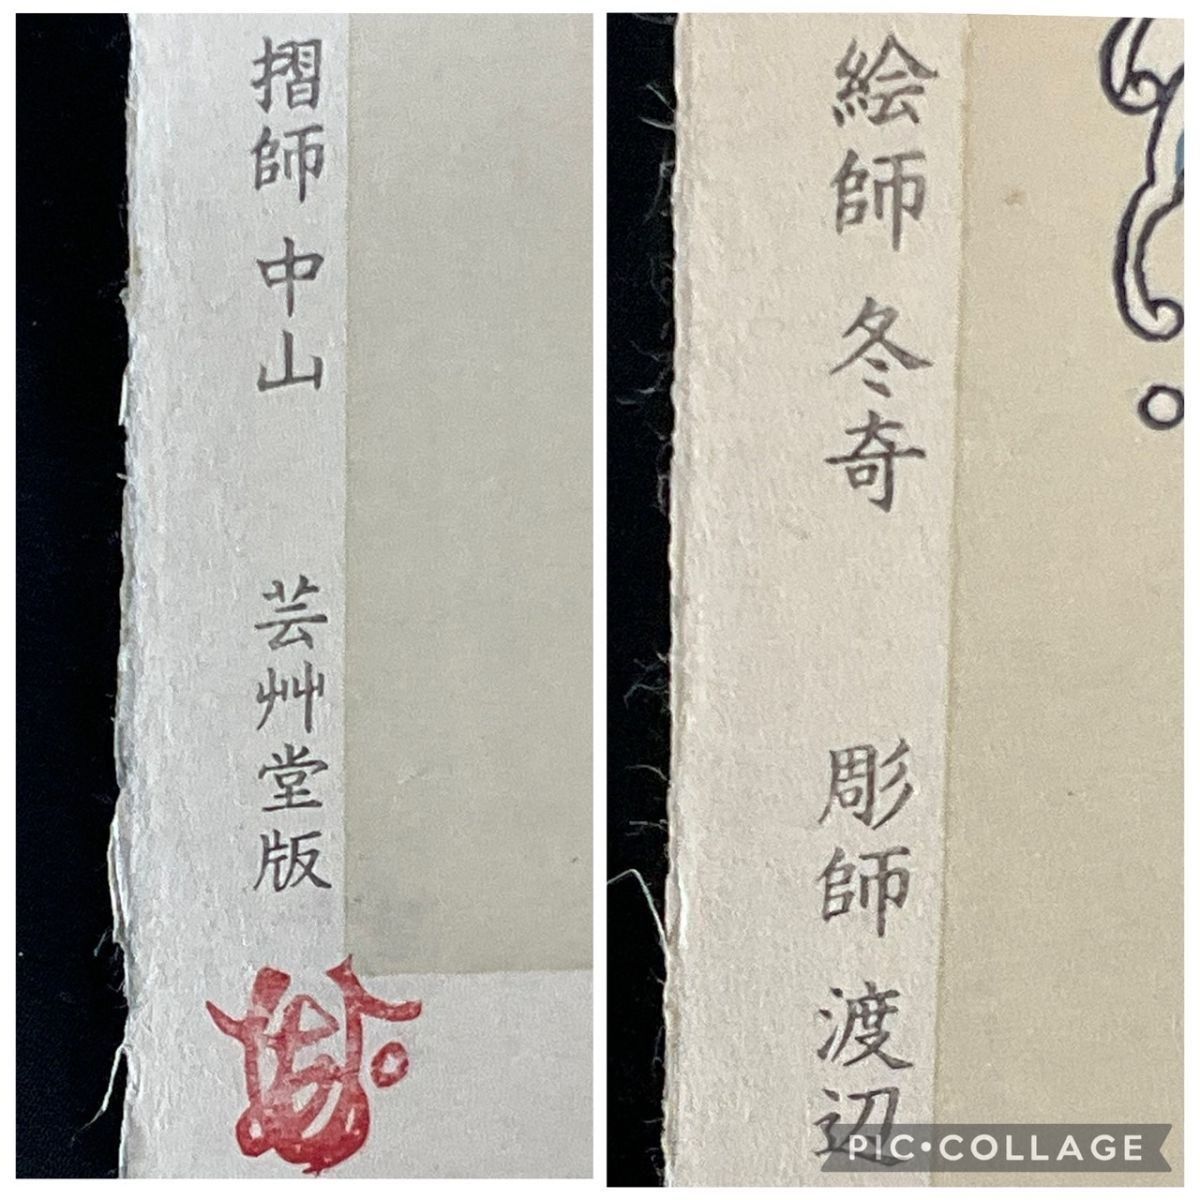 摺師 中山 芸艸堂版
絵師 冬奇 彫師 渡辺
PIC•COLLAGE